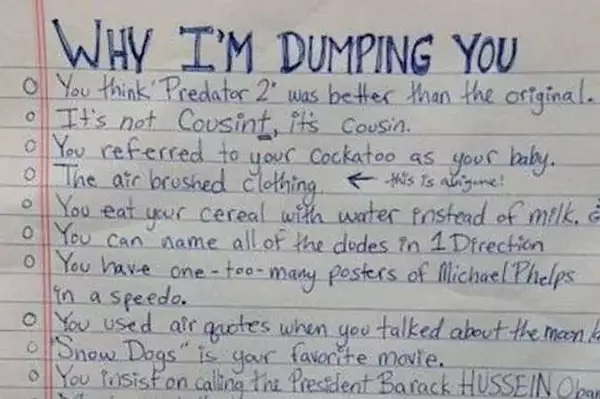 WHY I'M DUMPING YOU
You think 'Predator 2' was better than the original.
It's not Cousint, it's Cousin.
You referred to your cockatoo as your baby.
The air brushed clothing ← this is a
You eat your cereal with water instead of milk.
You can name all of the dudes in 1 Direction
You have one-too-many posters of Michael Phelps
in a speedo.
You used air quotes when you talked about the moon
"Snow Dogs" is your favorite movie.
You insist on calling the President Barack HUSSEIN Oba